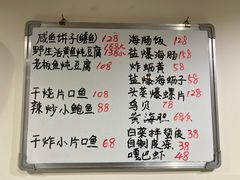 咸鱼饼子(鳝鱼) 128
野生活黄鱼炖豆腐 138/大 158/条
老板鱼炖豆腐 108
干烧片口鱼 108
辣炒小鲍鱼 88
干炸小片口鱼 68
海肠饭 128
盐爆海肠 158
炸蛎黄 58
盐爆海蛎子 58
头菜爆螺片 128
乌贝 78
黄海胆 68
白菜拌蜇皮 38
自制皮冻 38
嘎巴虾 48